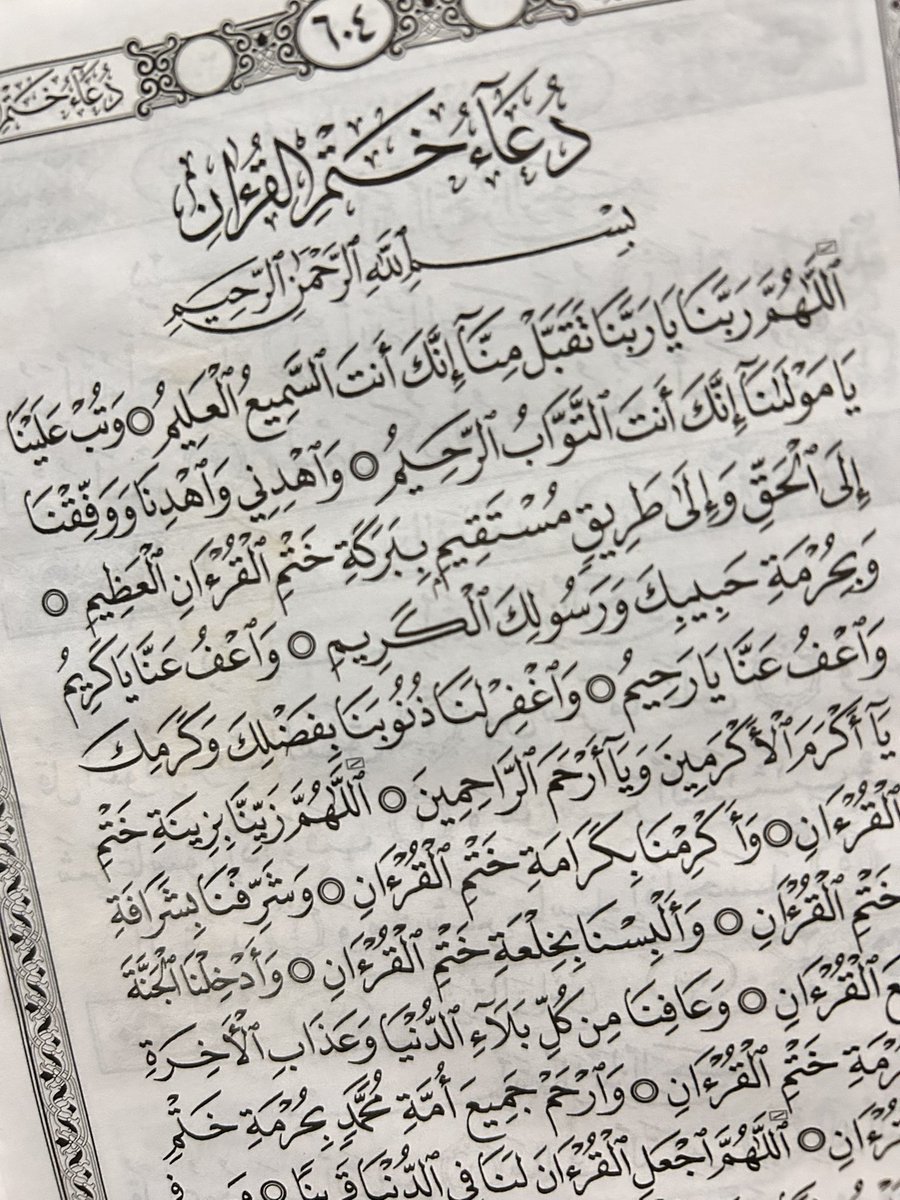 ٦٠٤
دُعَآءُ خَتْمِ
دُعَآءُ خَتْمِ الْقُرْءَانِ
بِسْمِ ٱللَّهِ ٱلرَّحْمَٰنِ ٱلرَّحِيمِ
ٱللَّهُمَّ رَبَّنَا يَا رَبَّنَا تَقَبَّلْ مِنَّآ إِنَّكَ أَنتَ ٱلسَّمِيعُ ٱلْعَلِيمُ ۝ وَتُبْ عَلَيْنَا
يَا مَوْلَىٰنَآ إِنَّكَ أَنتَ ٱلتَّوَّابُ ٱلرَّحِيمُ ۝ وَٱهْدِنِي وَٱهْدِنَا وَوَفِّقْنَا
إِلَى ٱلْحَقِّ وَإِلَىٰ طَرِيقٍ مُسْتَقِيمٍ بِبَرَكَةِ خَتْمِ ٱلْقُرْءَانِ ٱلْعَظِيمِ ۝
وَبِحُرْمَةِ حَبِيبِكَ وَرَسُولِكَ ٱلْكَرِيمِ ۝ وَٱعْفُ عَنَّا يَا كَرِيمُ
وَٱعْفُ عَنَّا يَا رَحِيمُ ۝ وَٱغْفِرْ لَنَا ذُنُوبَنَا بِفَضْلِكَ وَكَرَمِكَ
يَآ أَكْرَمَ ٱلْأَكْرَمِينَ وَيَآ أَرْحَمَ ٱلرَّاحِمِينَ ۝ ٱللَّهُمَّ زَيِّنَّا بِزِينَةِ خَتْمِ
ٱلْقُرْءَانِ ۝ وَأَكْرِمْنَا بِكَرَامَةِ خَتْمِ ٱلْقُرْءَانِ ۝ وَشَرِّفْنَا بِشَرَافَةِ
خَتْمِ ٱلْقُرْءَانِ ۝ وَأَلْبِسْنَا بِخِلْعَةِ خَتْمِ ٱلْقُرْءَانِ ۝ وَأَدْخِلْنَا ٱلْجَنَّةَ
ٱلْقُرْءَانِ ۝ وَعَافِنَا مِن كُلِّ بَلَآءِ ٱلدُّنْيَا وَعَذَابِ ٱلْأَخِرَةِ
خَتْمِ ٱلْقُرْءَانِ ۝ وَٱرْحَمْ جَمِيعَ أُمَّةِ مُحَمَّدٍ بِحُرْمَةِ خَتْمِ
۝ ٱللَّهُمَّ ٱجْعَلِ ٱلْقُرْءَانَ لَنَا فِي ٱلدُّنْيَا قَرِينًا ۝